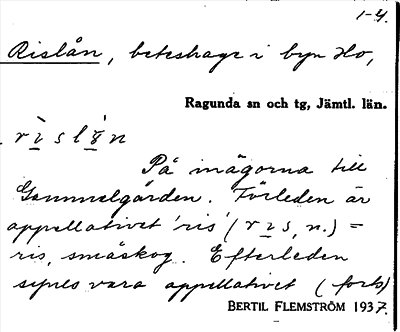 1-4.
Rislån, beteshage i byn Ho,
Ragunda sn och tg, Jämtl. län.
På mägorna till
Gammelgården. Förleden är
appellativet 'ris' (r ı s, n.) =
ris, småskog. Efterleden
synes vara appellativet (forts)
BERTIL FLEMSTRÖM 1937.